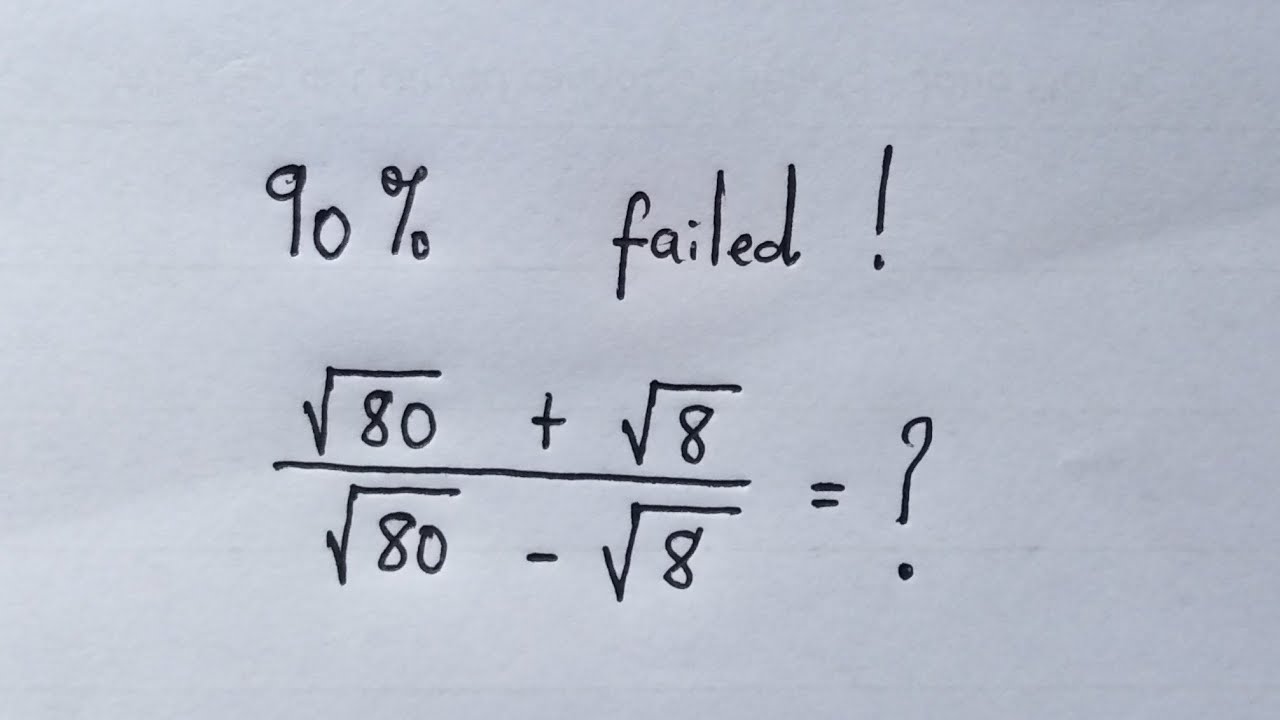 90% failed!
√80 + √8
√80 - √8 = ?